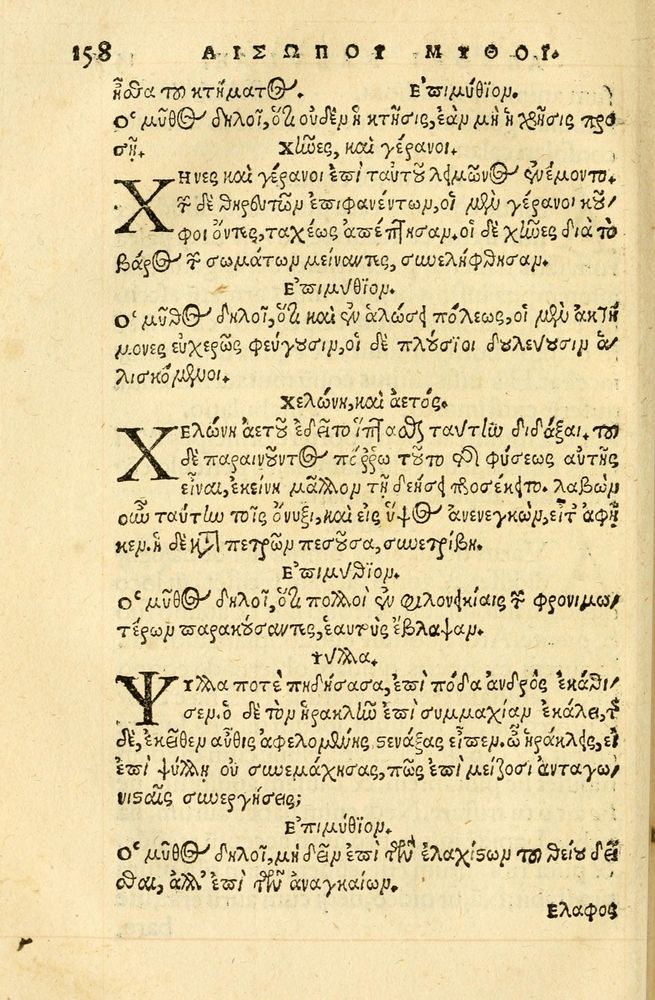 158 ΑΙΣΩΠΟΥ ΜΥΘΟΙ.
ἦσθα τοῦ κτήματος. Ἐπιμύθιον.
Ὁ μῦθος δηλοῖ, ὅτι οὐδὲν ἡ κτῆσις, ἐὰν μὴ ἡ χρῆσις προσ
ῇ. Χῆνες, καὶ γέρανοι.
ΧΗνες καὶ γέρανοι ἐπὶ ταὐτοῦ λειμῶνος ἐνέμοντο.
τῶν δὲ θηρευτῶν ἐπιφανέντων, οἱ μὲν γέρανοι κοῦ
φοι ὄντες, ταχέως ἀπέπτησαν. οἱ δὲ χῆνες διὰ τὸ
βάρος τῶν σωμάτων μείναντες, συνελήφθησαν.
Ἐπιμύθιον.
Ὁ μῦθος δηλοῖ, ὅτι καὶ ἐν ἁλώσει πόλεως, οἱ μὲν ἀκτή
μονες εὐχερῶς φεύγουσιν, οἱ δὲ πλούσιοι δουλεύουσιν ἁ
λισκόμενοι.
Χελώνη, καὶ ἀετός.
ΧΕλώνη ἀετοῦ ἐδεῖτο ἵπτασθαι ταύτην διδάξαι. τοῦ
δὲ παραινοῦντος πόρρω τοῦτο τῆς φύσεως αὐτῆς
εἶναι, ἐκείνη μᾶλλον τῇ δεήσει προσέκειτο. λαβὼν
οὖν ταύτην τοῖς ὄνυξι, καὶ εἰς ὕψος ἀνενεγκὼν, εἶτ' ἀφῆ
κεν. ἡ δὲ κατὰ πετρῶν πεσοῦσα, συνετρίβη.
Ἐπιμύθιον.
Ὁ μῦθος δηλοῖ, ὅτι πολλοὶ ἐν φιλονεικίαις τῶν φρονιμω
τέρων παρακούσαντες, ἑαυτοὺς ἔβλαψαν.
Ψύλλα.
ΨΥλλα ποτὲ πηδήσασα, ἐπὶ πόδα ἀνδρὸς ἐκάθι
σεν. ὁ δὲ τὸν ἡρακλῆν ἐπὶ συμμαχίαν ἐκάλει, τῆς
δὲ, ἐκεῖθεν αὖθις ἀφελομένης, στενάξας εἶπεν. ὦ ἡράκλεις, εἰ
ἐπὶ ψύλλῃ οὐ συνεμάχησας, πῶς ἐπὶ μείζοσι ἀνταγω
νισταῖς συνεργήσεις;
Ἐπιμύθιον.
Ὁ μῦθος δηλοῖ, μὴ δεῖν ἐπὶ τῶν ἐλαχίστων τοῦ θείου δεῖ
σθαι, ἀλλ' ἐπὶ τῶν ἀναγκαίων.
Ἔλαφος